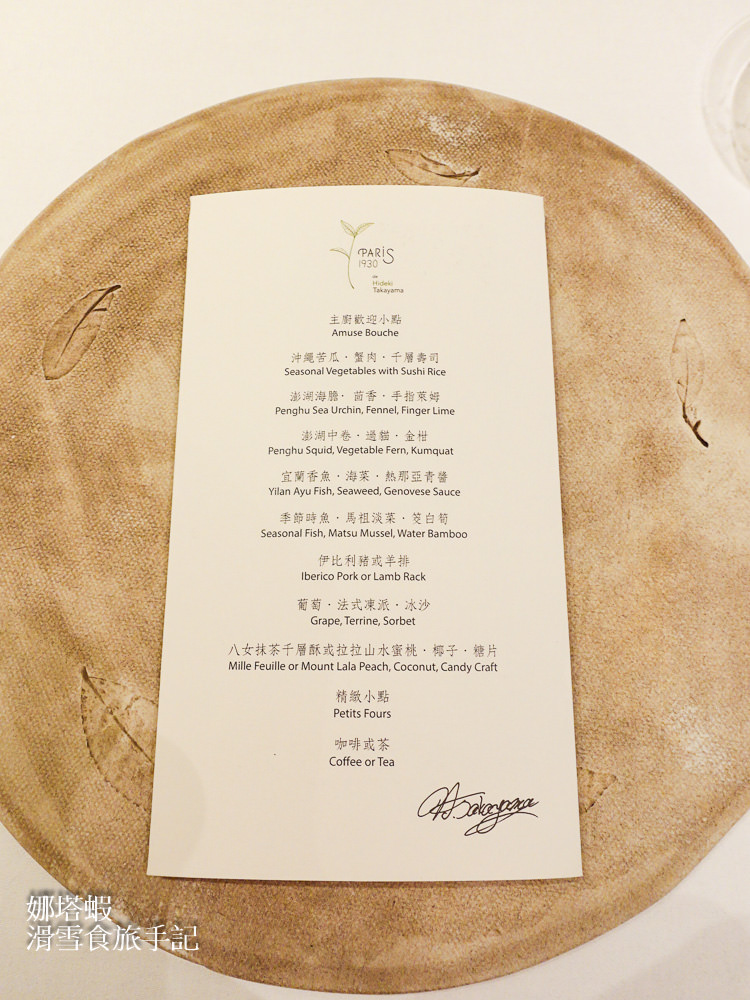 PARIS
1930
de
Hideki
Takayama
主廚歡迎小點
Amuse Bouche
沖繩苦瓜‧蟹肉‧千層壽司
Seasonal Vegetables with Sushi Rice
澎湖海膽‧茴香‧手指萊姆
Penghu Sea Urchin, Fennel, Finger Lime
澎湖中卷‧過貓‧金柑
Penghu Squid, Vegetable Fern, Kumquat
宜蘭香魚‧海菜‧熱那亞青醬
Yilan Ayu Fish, Seaweed, Genovese Sauce
季節時魚‧馬祖淡菜‧筊白筍
Seasonal Fish, Matsu Mussel, Water Bamboo
伊比利豬或羊排
Iberico Pork or Lamb Rack
葡萄‧法式凍派‧冰沙
Grape, Terrine, Sorbet
八女抹茶千層酥或拉拉山水蜜桃‧椰子‧糖片
Mille Feuille or Mount Lala Peach, Coconut, Candy Craft
精緻小點
Petits Fours
咖啡或茶
Coffee or Tea
H.Takayama
娜塔蝦
滑雪食旅手記